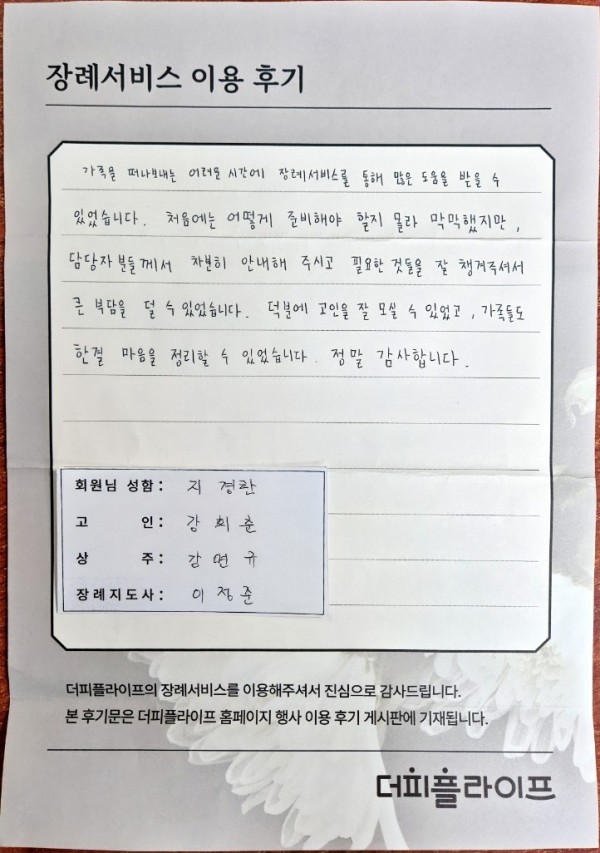 장례서비스 이용 후기
가족을 떠나보내는 어려운 시간에 장례서비스를 통해 많은 도움을 받을 수
있었습니다. 처음에는 어떻게 준비해야 할지 몰라 막막했지만,
담당자분들께서 차분히 안내해 주시고 필요한 것들을 잘 챙겨주셔서
큰 부담을 덜 수 있었습니다. 덕분에 고인을 잘 모실 수 있었고, 가족들도
한결 마음을 정리할 수 있었습니다. 정말 감사합니다.
회원님 성함: 지경란
고 인: 강희춘
상 주: 강면규
장례지도사: 이정준
더피플라이프의 장례서비스를 이용해주셔서 진심으로 감사드립니다.
본 후기문은 더피플라이프 홈페이지 행사 이용 후기 게시판에 기재됩니다.
더피플라이프